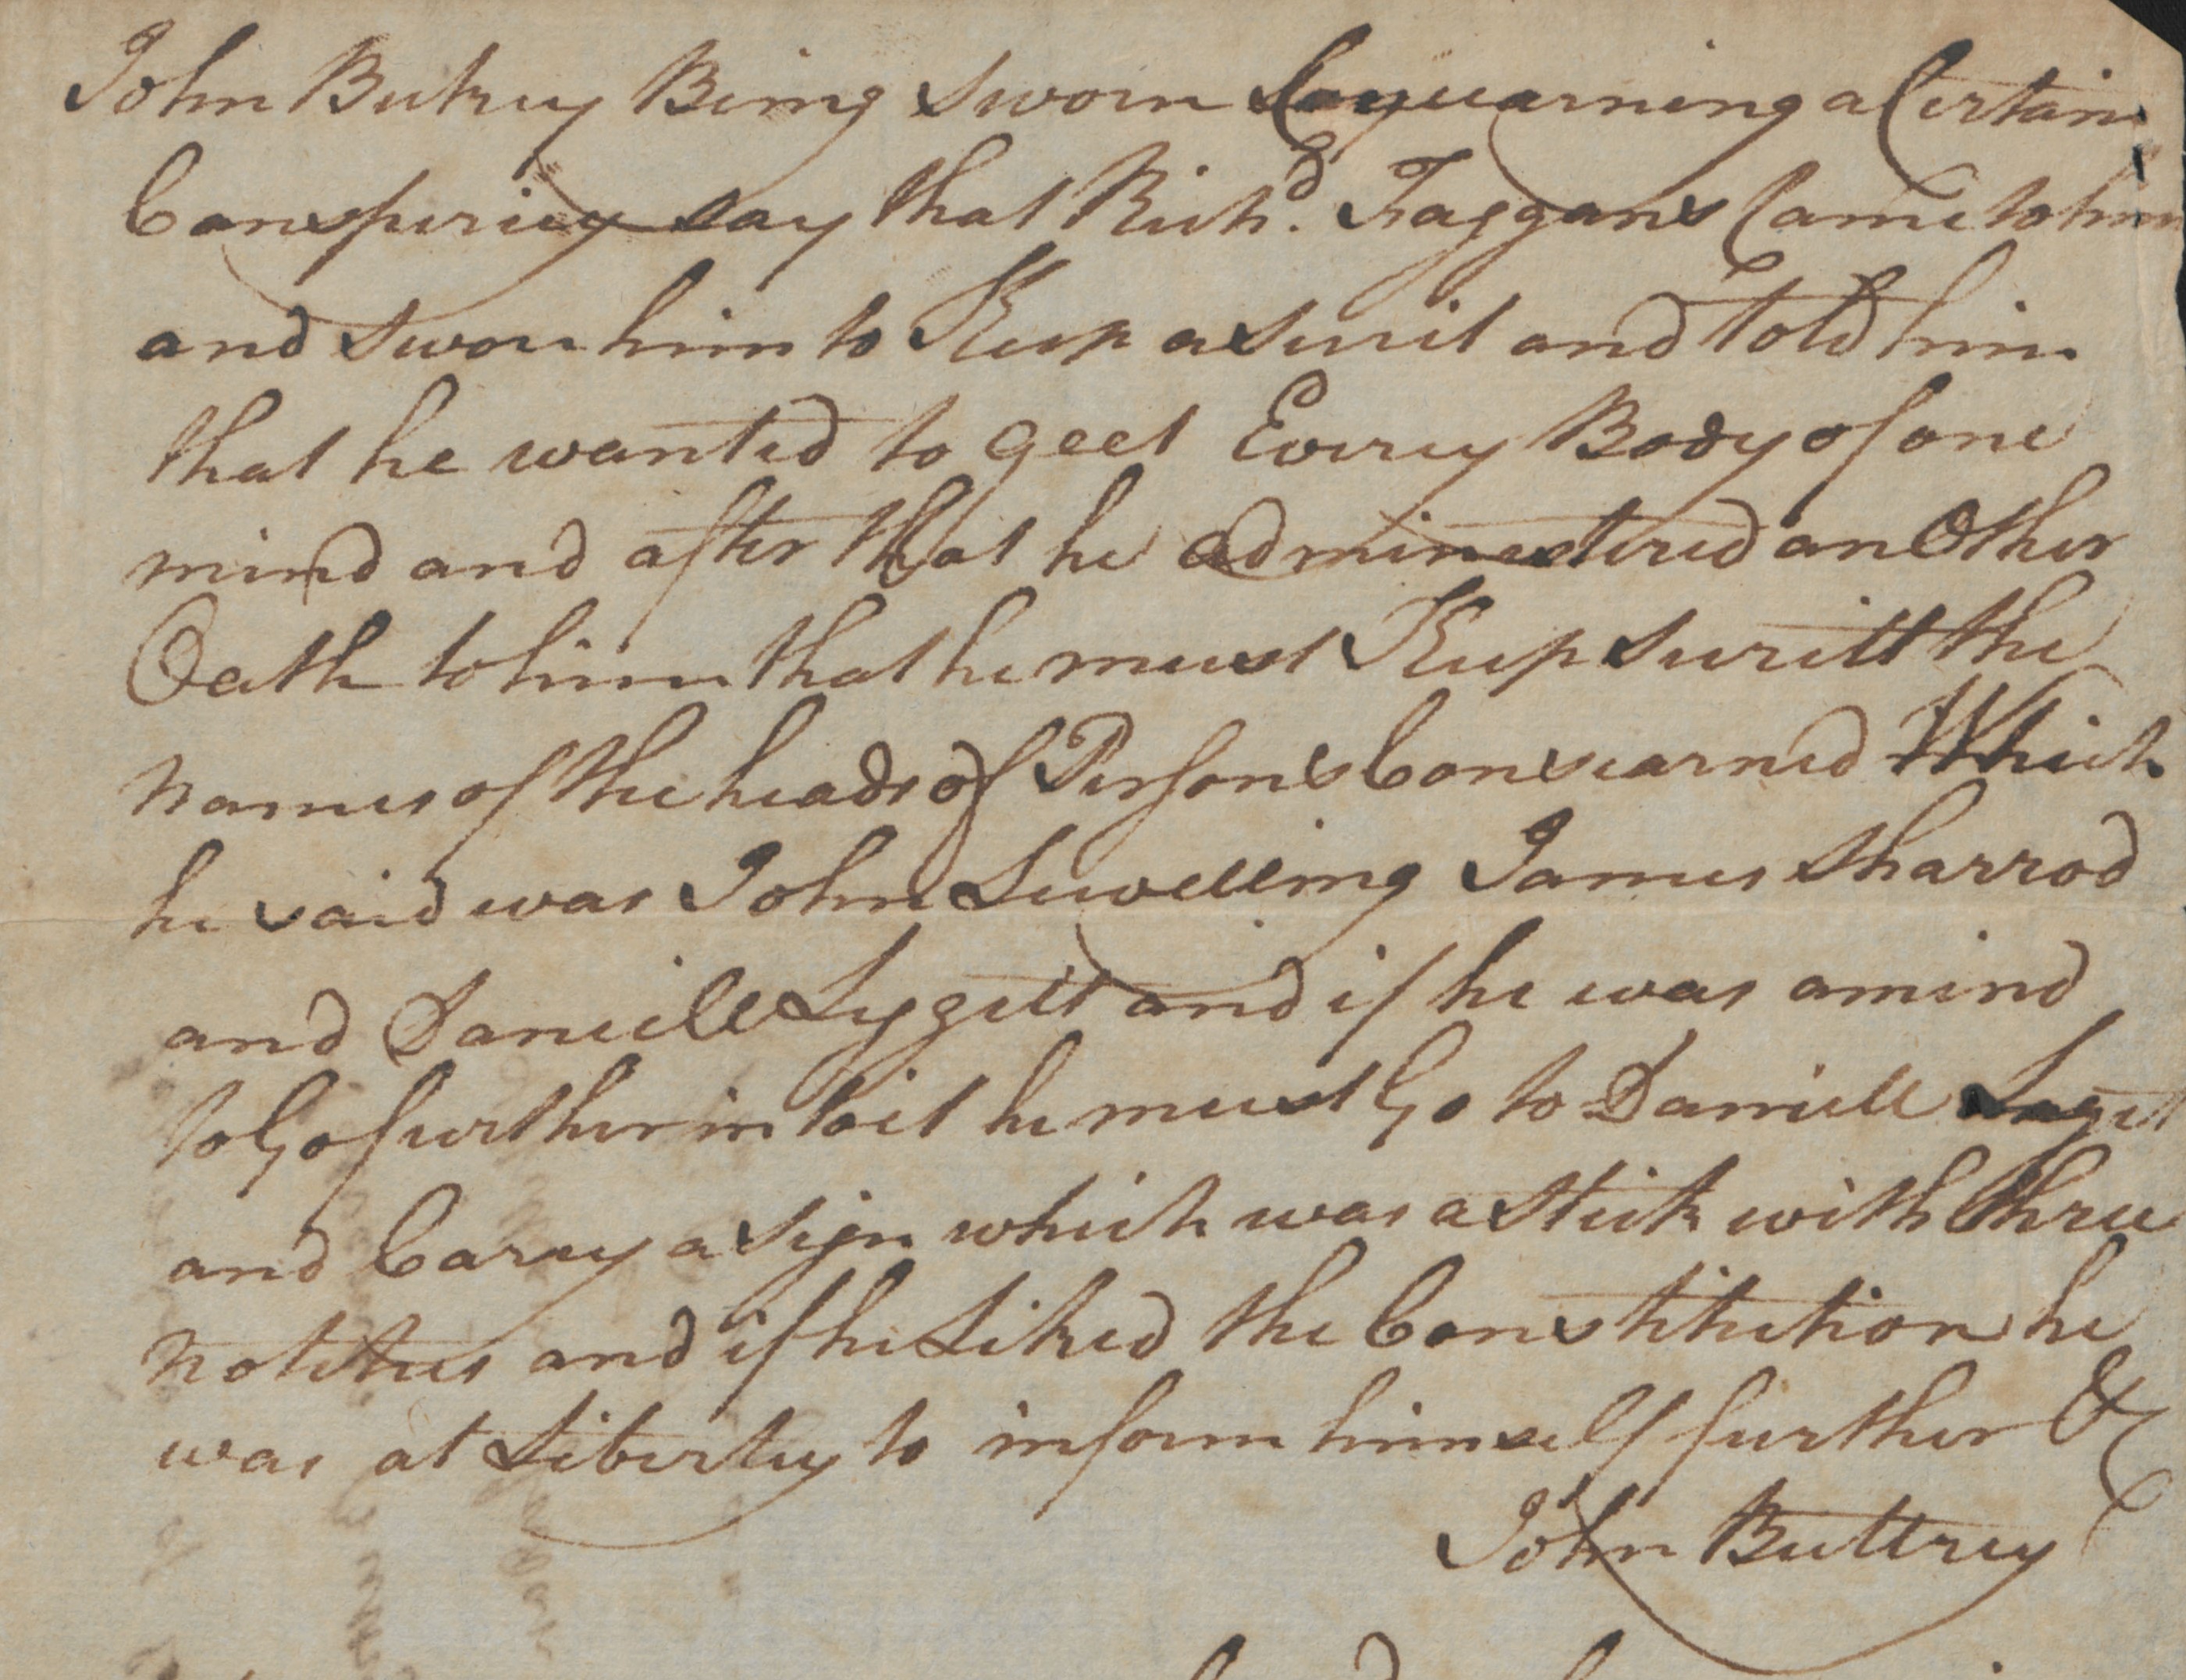 John Butrey Being sworn Conquarning a Certain
Conspericy say that Rich.d Faggans Came to him
and swore him to Keep a Secrit and Told him
that he wanted to geet Everey Body of one
mind and after that he adminestered an Other
Oath to him that he must Keep Secritt the
names of the heads of Persons Consearned Which
he said was John Lewelling James Sharrod
and Danielle Lygett and if he was a mind
to Go further in to it he must Go to Daniell Legett
and Carey a Sign which was a Stick with three
notches and if he Liked the Constitution he
was at Liberty to inform himself further &
John Buttrey